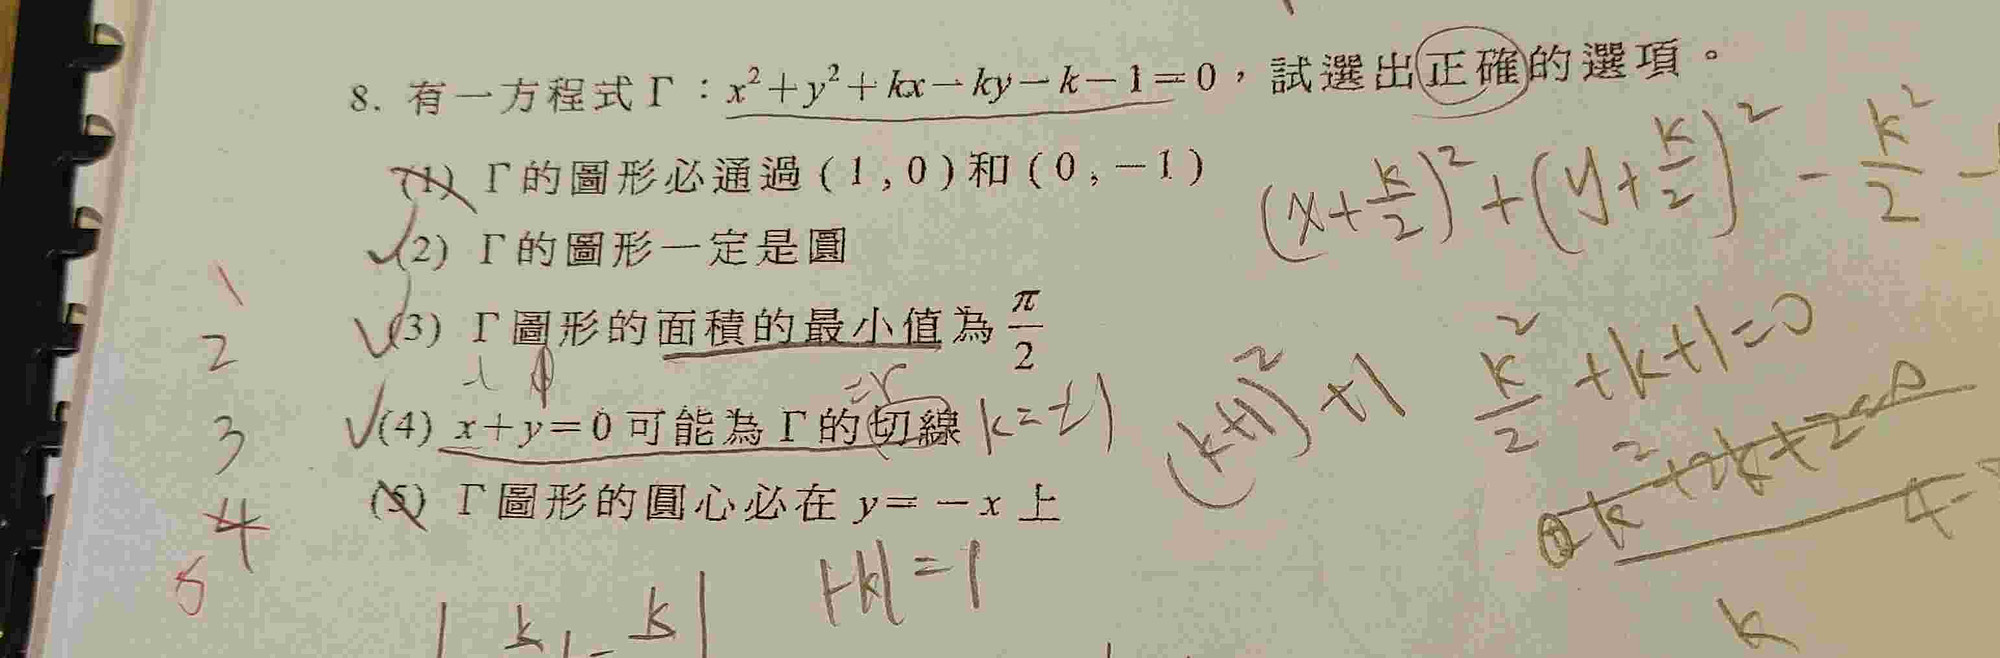 8. 有一方程式 Γ：x²+y²+kx−ky−k−1=0，試選出正確的選項。
(1) Γ的圖形必通過(1,0)和(0,−1)
(x+k/2)²+(y+k/2)²−k²/2−
(2) Γ的圖形一定是圓
(3) Γ圖形的面積的最小值為 π/2
(4) x+y=0可能為Γ的切線
=r
k=±1
(k+1)²+1
k²/2+k+1=0
(5) Γ圖形的圓心必在 y=−x 上
1
2
3
4
5
k